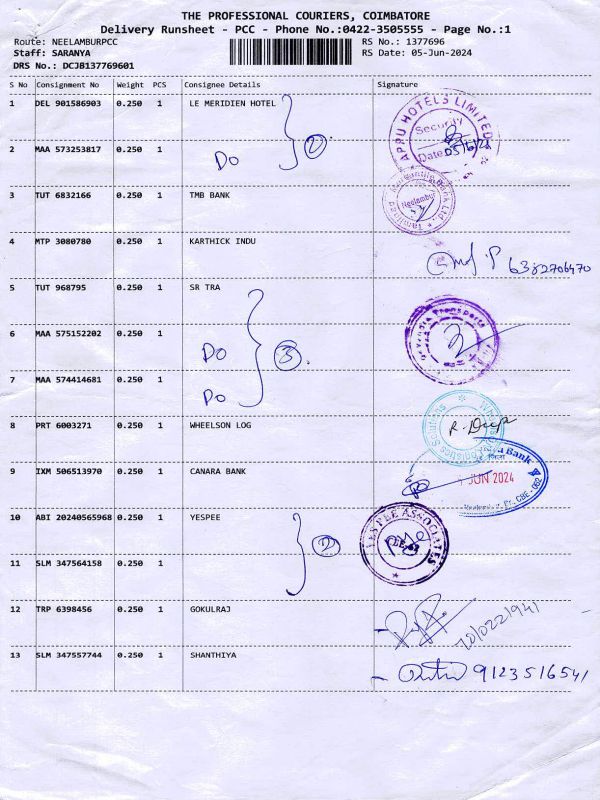 THE PROFESSIONAL COURIERS, COIMBATORE
Delivery Runsheet - PCC - Phone No.:0422-3505555 - Page No.:1
Route: NEELAMBURPCC
RS No.: 1377696
Staff: SARANYA
RS Date: 05-Jun-2024
DRS No.: DCJB137769601
S No Consignment No Weight PCS Consignee Details Signature
1 DEL 901586903 0.250 1 LE MERIDIEN HOTEL
APPU HOTELS LIMITED
Security
Date 05/6/24
2 MAA 573253817 0.250 1 Do 2
3 TUT 6832166 0.250 1 TMB BANK
Neelambur
4 MTP 3080780 0.250 1 KARTHICK INDU
6382706470
5 TUT 968795 0.250 1 SR TRA
6 MAA 575152202 0.250 1 Do 3
Transports
7 MAA 574414681 0.250 1 Do
8 PRT 6003271 0.250 1 WHEELSON LOG
R. Deep
9 IXM 506513970 0.250 1 CANARA BANK
Bank
JUN 2024
10 ABI 20240565968 0.250 1 YESPEE 2
YESPEE ASSOCIATES
11 SLM 347564158 0.250 1
12 TRP 6398456 0.250 1 GOKULRAJ
13 SLM 347557744 0.250 1 SHANTHIYA
9123516541